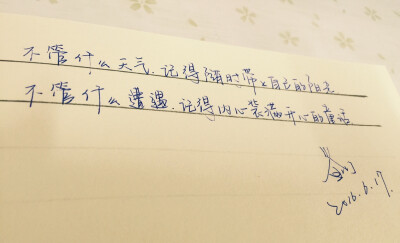 不管什么天气.记得随时带上自己的阳光
不管什么遭遇.记得内心装满开心的童话
2016.6.17.